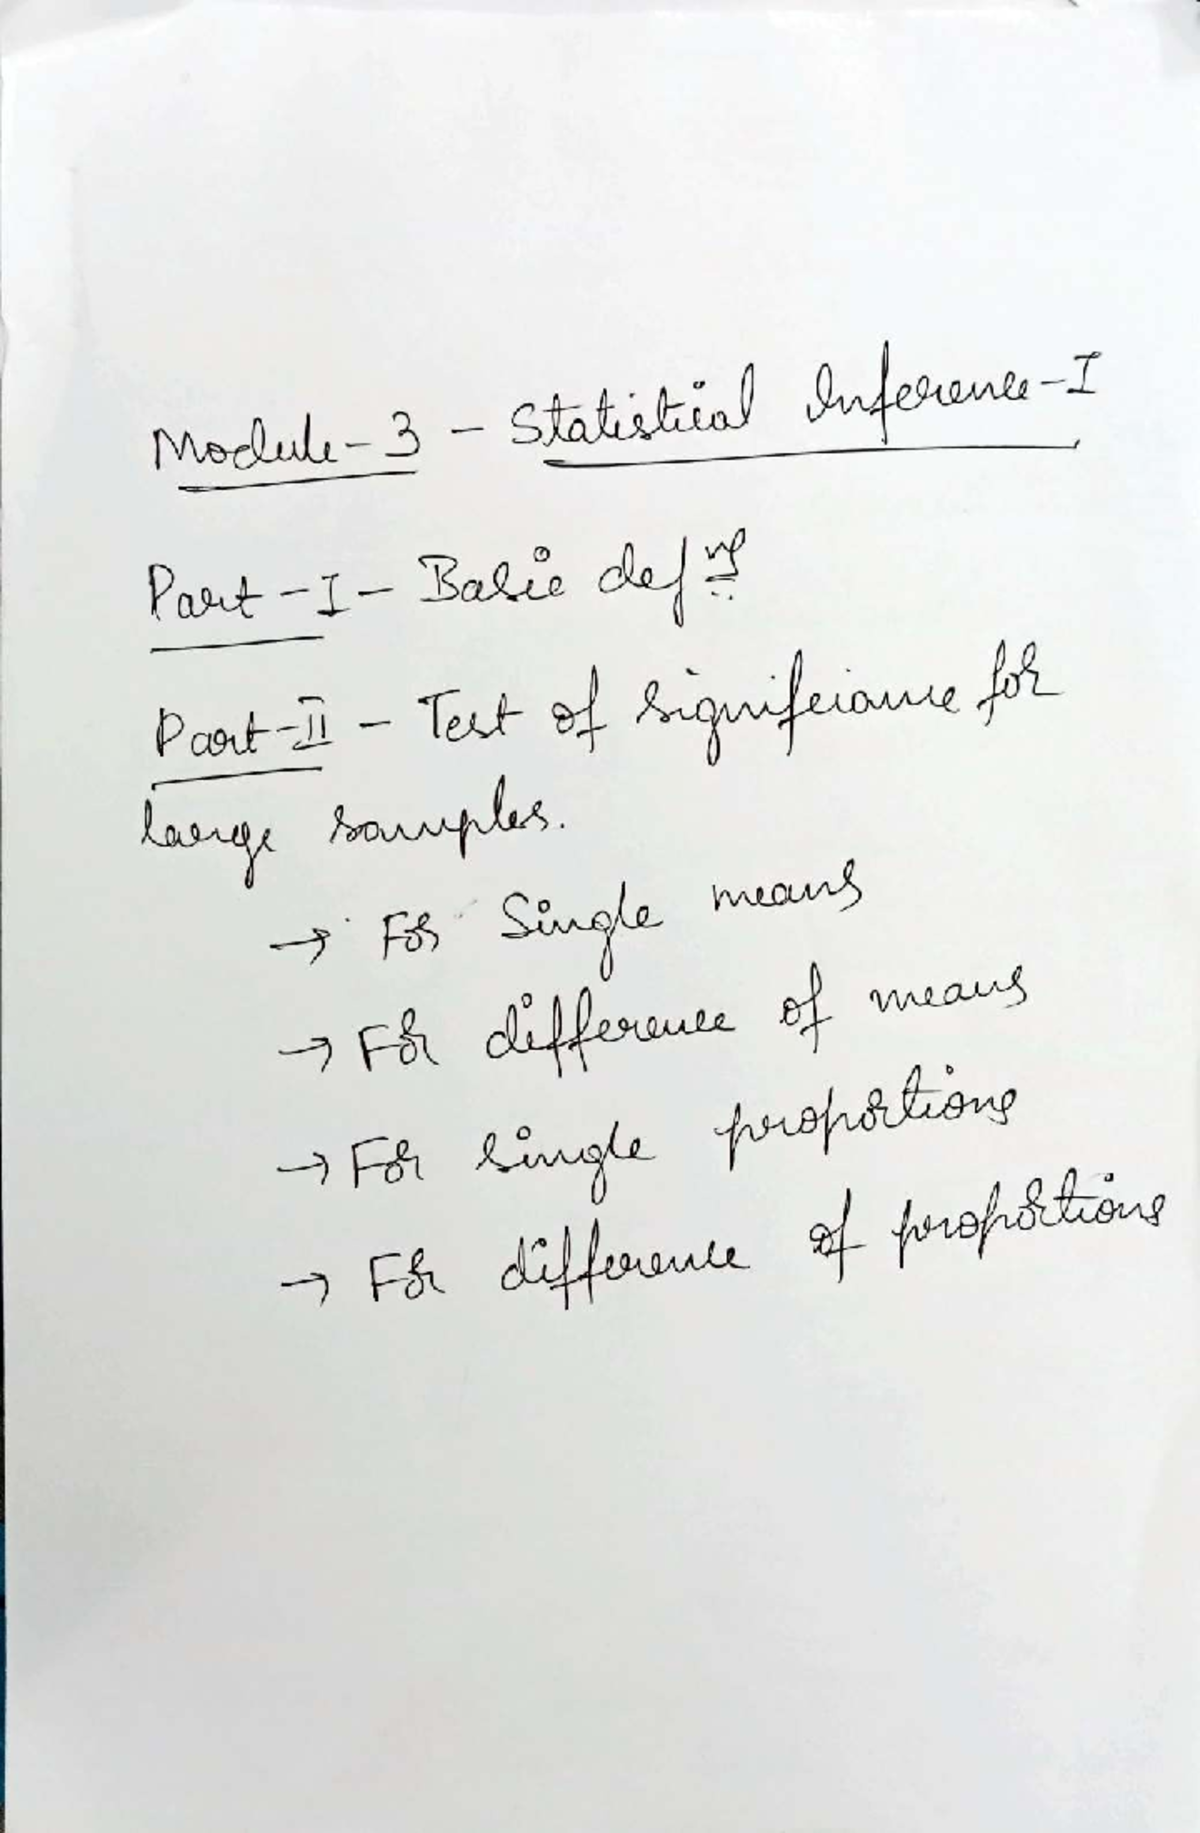 Module-3 - Statistical Inference-I
Part-I - Basic defns
Part-II - Test of significance for
large samples.
→ For Single means
→ For difference of means
→ For single proportions
→ For difference of proportions